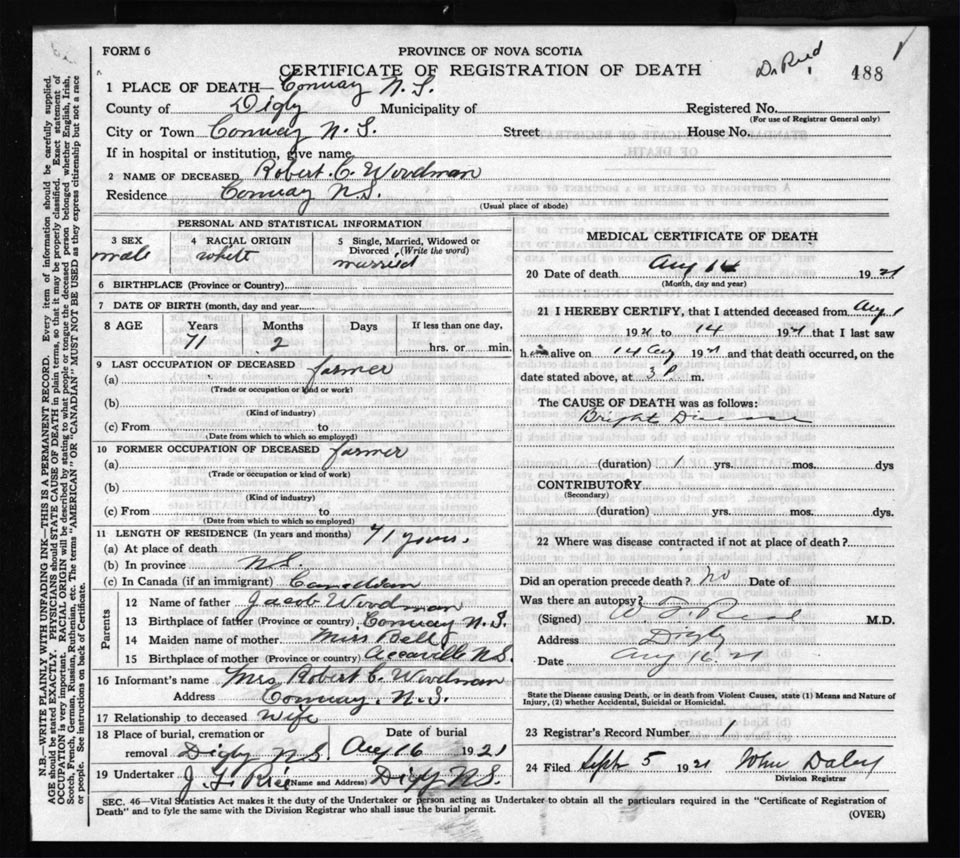 FORM 6
PROVINCE OF NOVA SCOTIA
CERTIFICATE OF REGISTRATION OF DEATH
Dr Reed
488
1 PLACE OF DEATH— Conway N.S.
County of Digby Municipality of Registered No.
(For use of Registrar General only)
City or Town Conway N.S. Street House No.
If in hospital or institution, give name
2 NAME OF DECEASED Robert C. Woodman
Residence Conway N.S.
(Usual place of abode)
PERSONAL AND STATISTICAL INFORMATION
3 SEX 4 RACIAL ORIGIN 5 Single, Married, Widowed or Divorced (Write the word)
male white married
6 BIRTHPLACE (Province or Country)
7 DATE OF BIRTH (month, day and year)
8 AGE Years Months Days If less than one day,
71 2 hrs. or min.
9 LAST OCCUPATION OF DECEASED farmer
(a)
(Trade or occupation or kind or work)
(b)
(Kind of industry)
(c) From to
(Date from which to which so employed)
10 FORMER OCCUPATION OF DECEASED farmer
(a)
(Trade or occupation or kind of work)
(b)
(Kind of industry)
(c) From to
(Date from which to which so employed)
11 LENGTH OF RESIDENCE (In years and months) 71 years.
(a) At place of death
(b) In province N.S.
(c) In Canada (if an immigrant) Canadian
Parents
12 Name of father Jacob Woodman
13 Birthplace of father (Province or country) Conway N.S.
14 Maiden name of mother Miss Bell
15 Birthplace of mother (Province or country) N.S.
16 Informant's name Mrs Robert C. Woodman
Address Conway. N.S.
17 Relationship to deceased Wife
18 Place of burial, cremation or Date of burial
removal Digby N.S. Aug 16 1921
19 Undertaker J. (Name and Address) Digby N.S.
MEDICAL CERTIFICATE OF DEATH
20 Date of death Aug 14 1921
(Month, day and year)
21 I HEREBY CERTIFY, that I attended deceased from Aug 1
1921 to 14 1921 that I last saw
him alive on 14 Aug 1921 and that death occurred, on the
date stated above, at 3 P m.
The CAUSE OF DEATH was as follows:
Bright Disease
(duration) 1 yrs. mos. dys
CONTRIBUTORY
(Secondary)
(duration) yrs. mos. dys.
22 Where was disease contracted if not at place of death?
Did an operation precede death? no Date of
Was there an autopsy?
(Signed) M.D.
Address Digby
Date Aug 16. 21
State the Disease causing Death, or in death from Violent Causes, state (1) Means and Nature of
Injury, (2) whether Accidental, Suicidal or Homicidal.
23 Registrar's Record Number 1
24 Filed Sept 5 1921 John Daley
Division Registrar
SEC. 46—Vital Statistics Act makes it the duty of the Undertaker or person acting as Undertaker to obtain all the particulars required in the "Certificate of Registration of
Death" and to fyle the same with the Division Registrar who shall issue the burial permit.
(OVER)
N.B.—WRITE PLAINLY WITH UNFADING INK—THIS IS A PERMANENT RECORD. Every item of information should be carefully supplied.
AGE should be stated EXACTLY. PHYSICIANS should STATE CAUSE OF DEATH in plain terms, so that it may be properly classified. Exact statement of
OCCUPATION is very important. RACIAL ORIGIN will be described by stating to what people or tongue the deceased person belonged whether English, Irish,
Scotch, French, German, Russian, Ruthenian, etc. The terms "AMERICAN" OR "CANADIAN" MUST NOT BE USED as they express citizenship but not a race
or people. See instructions on back of Certificate.